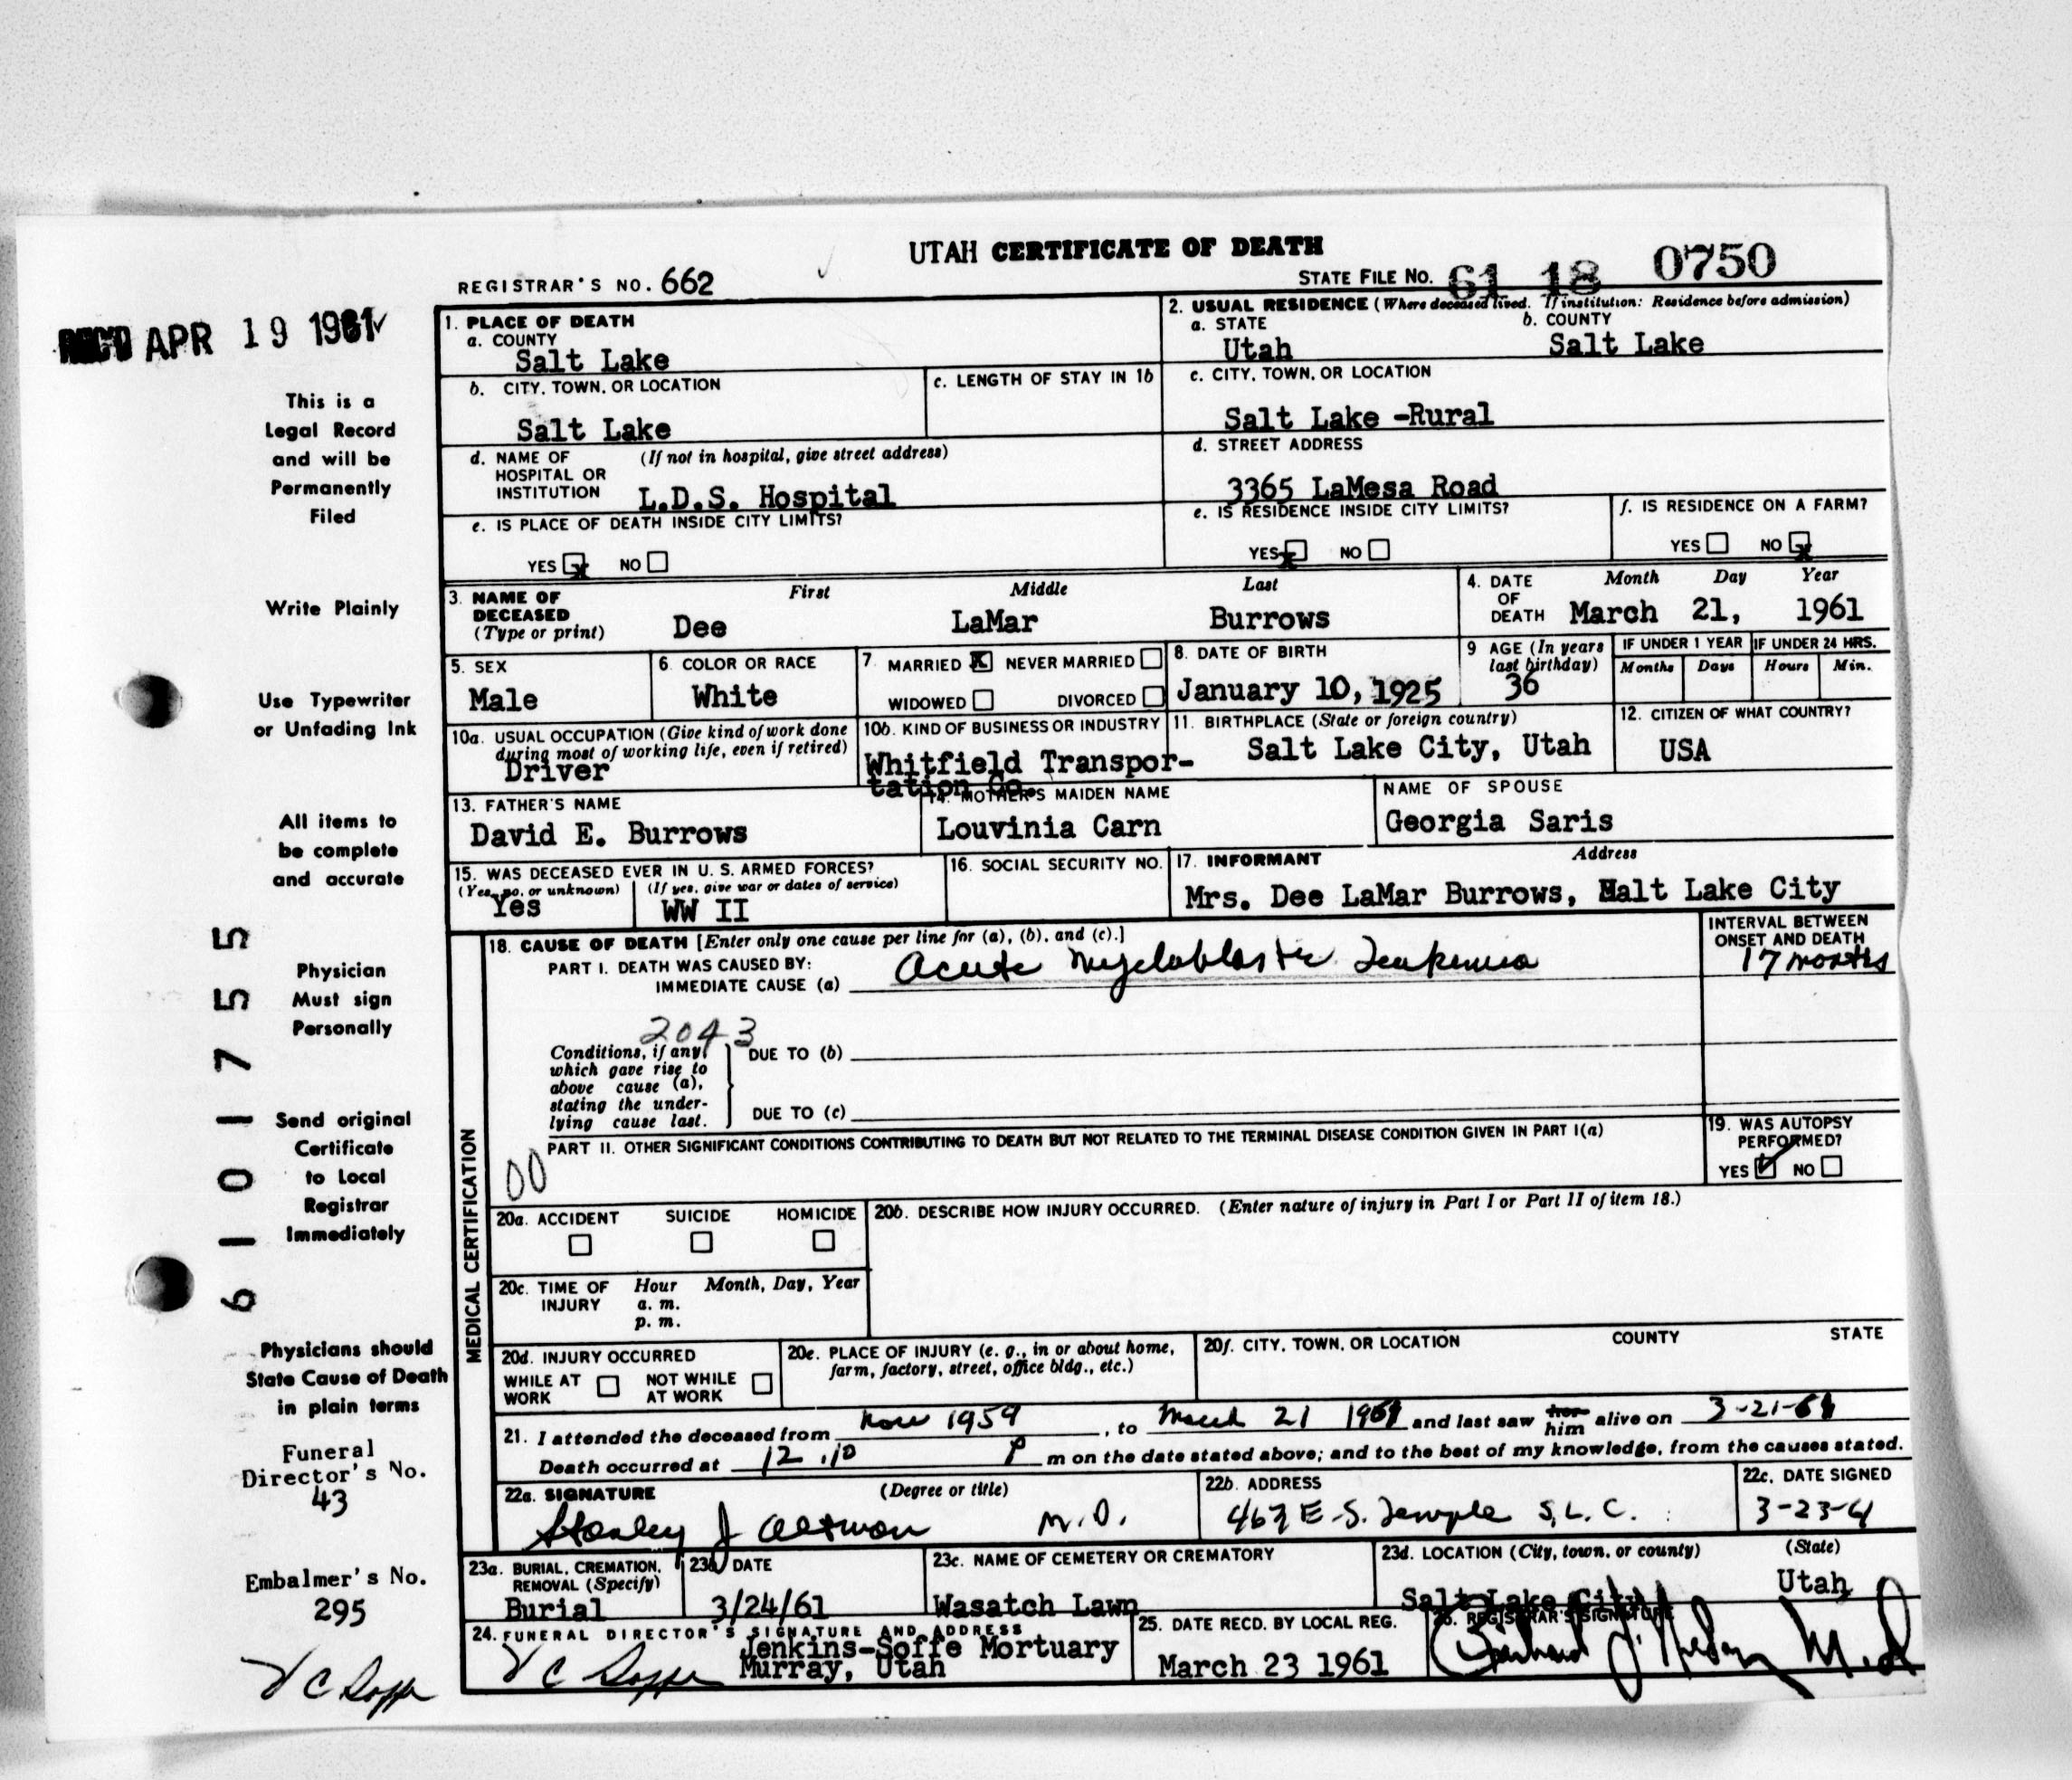 UTAH CERTIFICATE OF DEATH
REGISTRAR'S NO. 662
STATE FILE NO. 61 18 0750
REC'D APR 19 1961
This is a
Legal Record
and will be
Permanently
Filed
Write Plainly
Use Typewriter
or Unfading Ink
All items to
be complete
and accurate
Physician
Must sign
Personally
Send original
Certificate
to Local
Registrar
Immediately
Physicians should
State Cause of Death
in plain terms
Funeral
Director's No.
43
Embalmer's No.
295
6101755
1. PLACE OF DEATH
a. COUNTY
Salt Lake
2. USUAL RESIDENCE (Where deceased lived. If institution: Residence before admission)
a. STATE b. COUNTY
Utah Salt Lake
b. CITY, TOWN, OR LOCATION
Salt Lake
c. LENGTH OF STAY IN 1b
c. CITY, TOWN, OR LOCATION
Salt Lake -Rural
d. NAME OF (If not in hospital, give street address)
HOSPITAL OR
INSTITUTION L.D.S. Hospital
d. STREET ADDRESS
3365 LaMesa Road
e. IS PLACE OF DEATH INSIDE CITY LIMITS?
YES x NO
e. IS RESIDENCE INSIDE CITY LIMITS?
YES x NO
f. IS RESIDENCE ON A FARM?
YES NO x
3. NAME OF DECEASED (Type or print)
First Middle Last
Dee LaMar Burrows
4. DATE OF DEATH
Month Day Year
March 21, 1961
5. SEX
Male
6. COLOR OR RACE
White
7. MARRIED X NEVER MARRIED
WIDOWED DIVORCED
8. DATE OF BIRTH
January 10, 1925
9 AGE (In years last birthday)
36
IF UNDER 1 YEAR IF UNDER 24 HRS.
Months Days Hours Min.
10a. USUAL OCCUPATION (Give kind of work done
during most of working life, even if retired)
Driver
10b. KIND OF BUSINESS OR INDUSTRY
Whitfield Transpor-
tation Co.
11. BIRTHPLACE (State or foreign country)
Salt Lake City, Utah
12. CITIZEN OF WHAT COUNTRY?
USA
13. FATHER'S NAME
David E. Burrows
14. MOTHER'S MAIDEN NAME
Louvinia Carn
NAME OF SPOUSE
Georgia Saris
15. WAS DECEASED EVER IN U. S. ARMED FORCES?
(Yes, no, or unknown) (If yes, give war or dates of service)
Yes WW II
16. SOCIAL SECURITY NO.
17. INFORMANT Address
Mrs. Dee LaMar Burrows, Salt Lake City
MEDICAL CERTIFICATION
18. CAUSE OF DEATH [Enter only one cause per line for (a), (b), and (c).]
PART I. DEATH WAS CAUSED BY:
IMMEDIATE CAUSE (a) Acute Myeloblastic Leukemia
INTERVAL BETWEEN
ONSET AND DEATH
17 months
2043
Conditions, if any,
which gave rise to
above cause (a),
stating the under-
lying cause last.
DUE TO (b)
DUE TO (c)
PART II. OTHER SIGNIFICANT CONDITIONS CONTRIBUTING TO DEATH BUT NOT RELATED TO THE TERMINAL DISEASE CONDITION GIVEN IN PART I(a)
00
19. WAS AUTOPSY
PERFORMED?
YES ✓ NO
20a. ACCIDENT SUICIDE HOMICIDE
20b. DESCRIBE HOW INJURY OCCURRED. (Enter nature of injury in Part I or Part II of item 18.)
20c. TIME OF INJURY
Hour Month, Day, Year
a. m.
p. m.
20d. INJURY OCCURRED
WHILE AT WORK NOT WHILE AT WORK
20e. PLACE OF INJURY (e. g., in or about home,
farm, factory, street, office bldg., etc.)
20f. CITY, TOWN, OR LOCATION COUNTY STATE
21. I attended the deceased from Nov 1959, to March 21 1961 and last saw her him alive on 3-21-61
Death occurred at 12.10 P m on the date stated above; and to the best of my knowledge, from the causes stated.
22a. SIGNATURE (Degree or title)
Stanley J Altman M.D.
22b. ADDRESS
467 E. S. Temple S.L.C.
22c. DATE SIGNED
3-23-61
23a. BURIAL, CREMATION,
REMOVAL (Specify)
Burial
23b DATE
3/24/61
23c. NAME OF CEMETERY OR CREMATORY
Wasatch Lawn
23d. LOCATION (City, town, or county) (State)
Salt Lake City Utah
24. FUNERAL DIRECTOR'S SIGNATURE AND ADDRESS
Jenkins-Soffe Mortuary
Murray, Utah
V C Soffe
V C Soffe
25. DATE RECD. BY LOCAL REG.
March 23 1961
26. REGISTRAR'S SIGNATURE
M.D